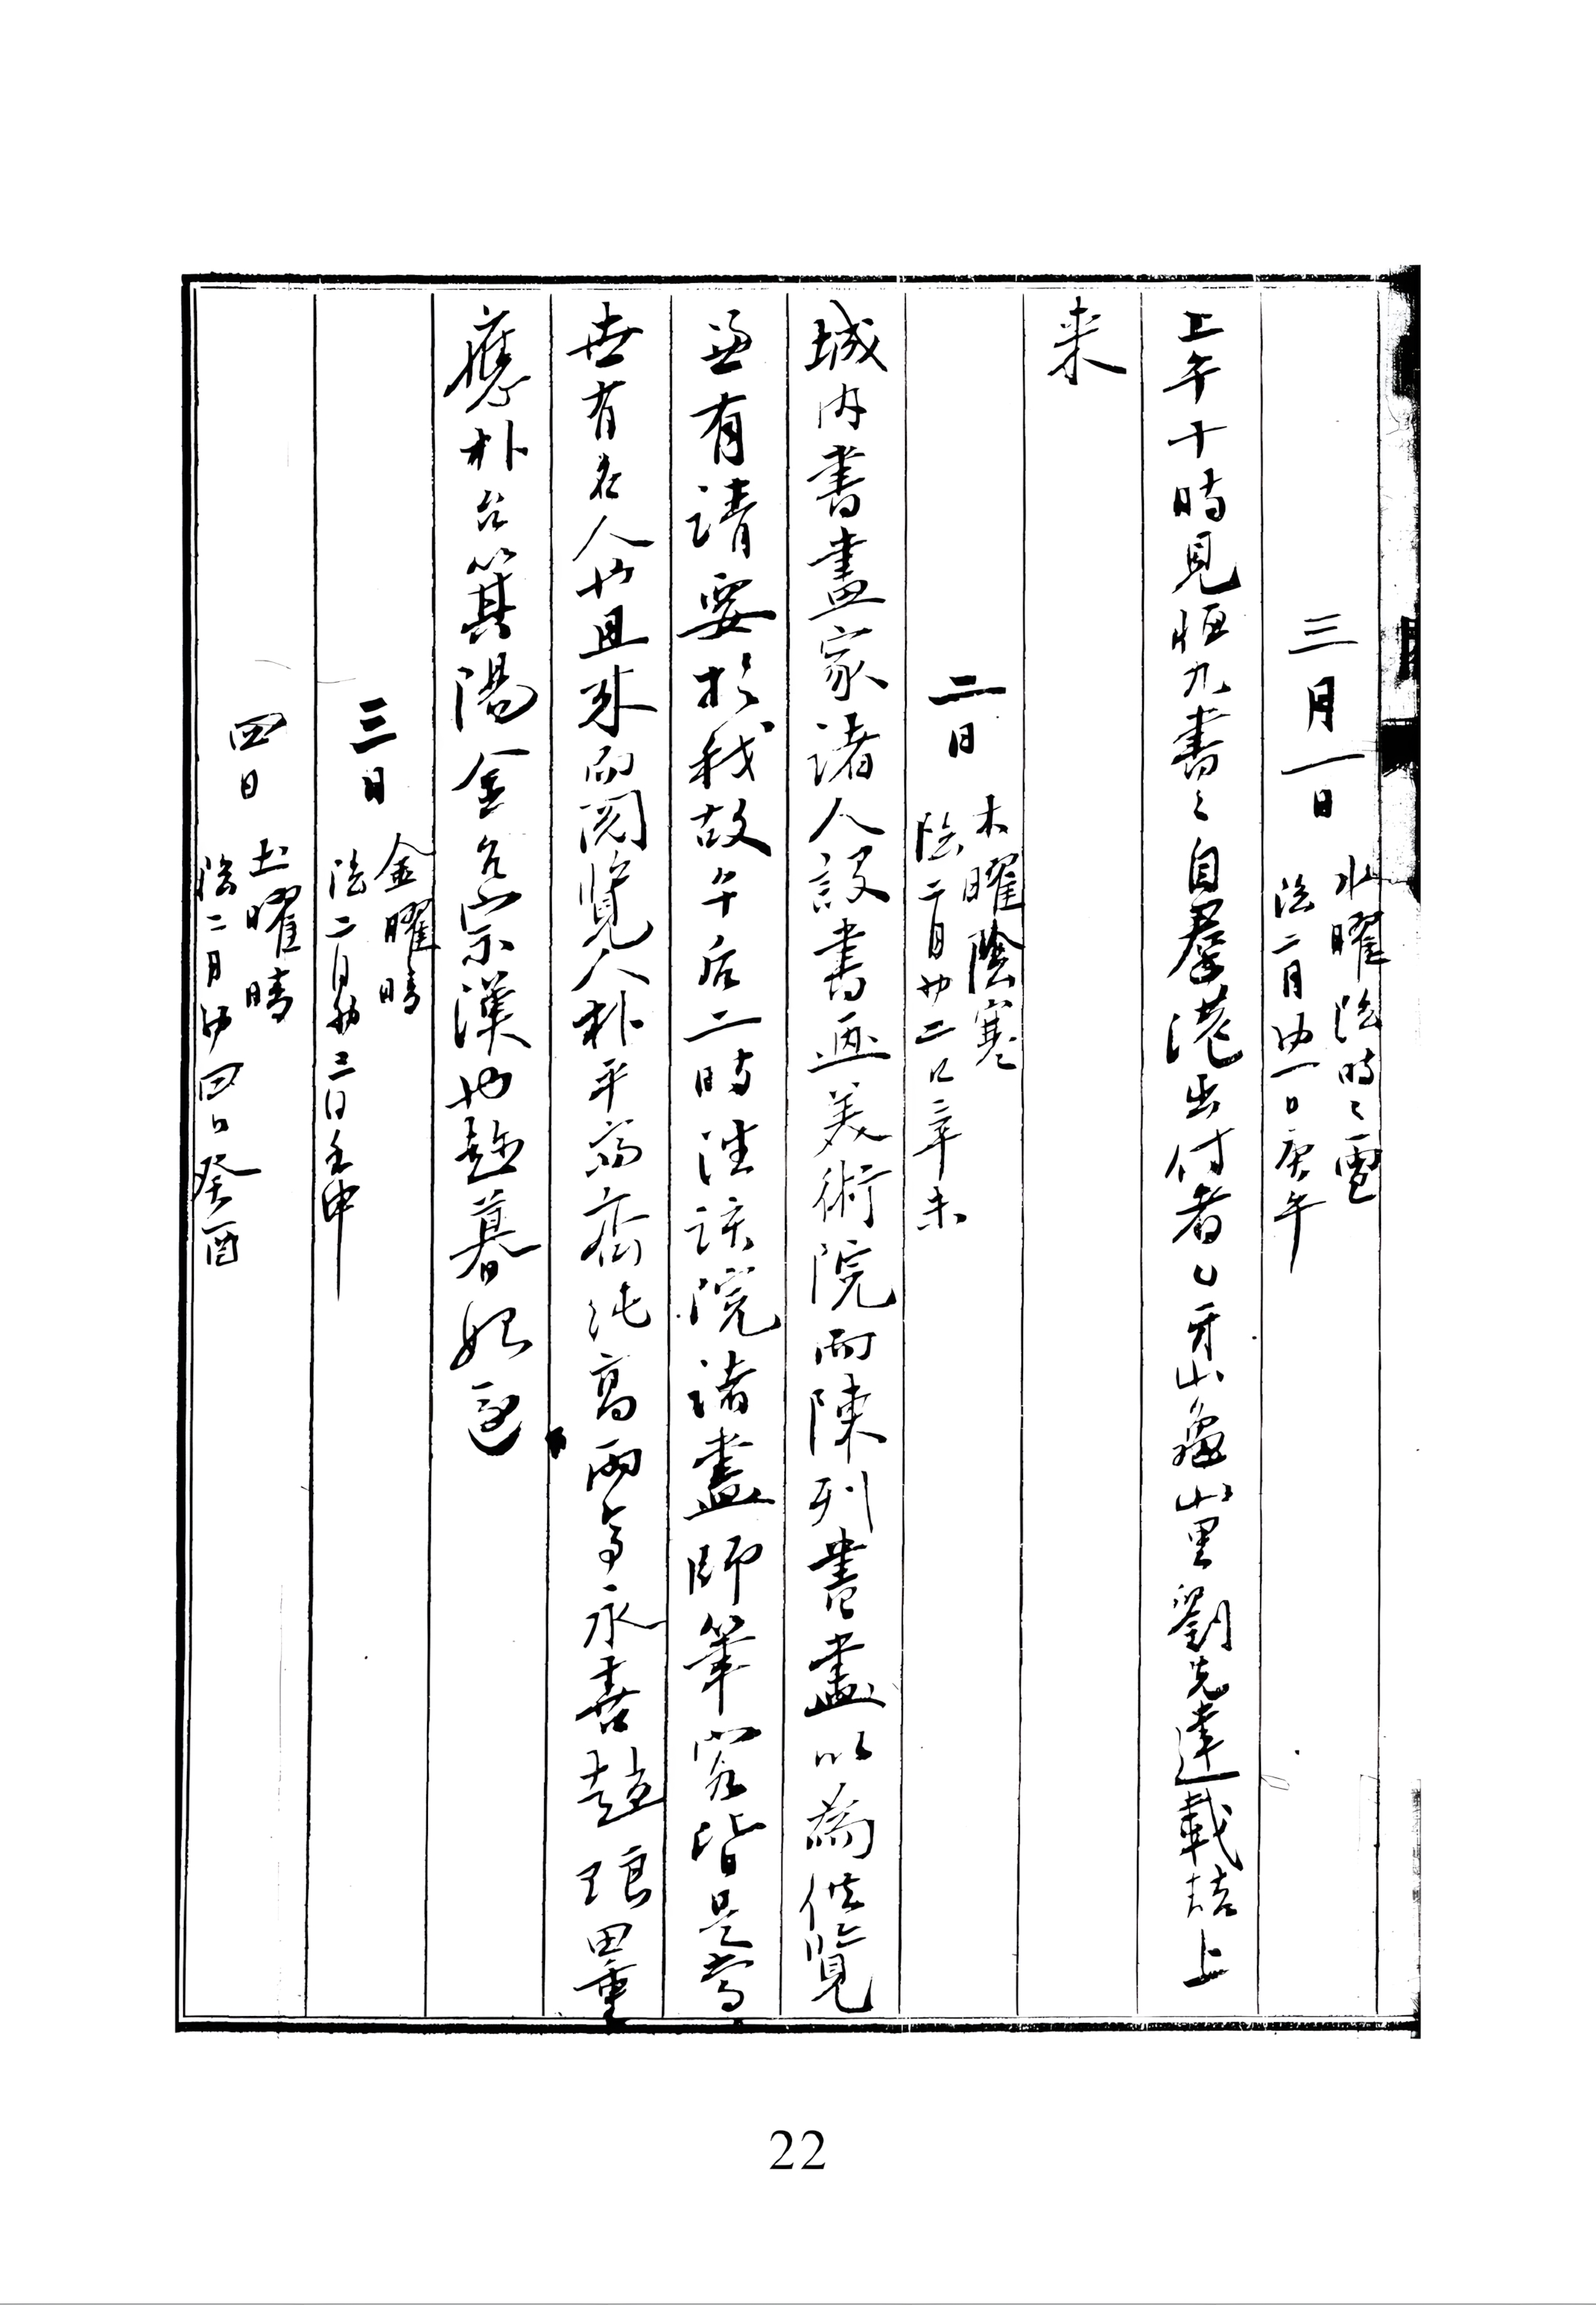 三月一日 水曜陰時々雪 陰二月廿一日庚午
上午十時見恒九書々自群港出付者也牙山龜山里劉先達載喆上
来
二日 木曜陰寒 陰二月廿二日辛未
城内書畫家諸人設書画美術院而陳列書畫以為供覽
兼有請要於我故午后二時往該院諸畫師筆客皆是當
世有名人也且来而閱覽人朴平齋齊純高雨亭永喜趙琅田重
應朴台箕陽金台宗漢也趁暮始還
三日 金曜晴 陰二月廿三日壬申
四日 土曜晴 陰二月廿四日癸酉
22